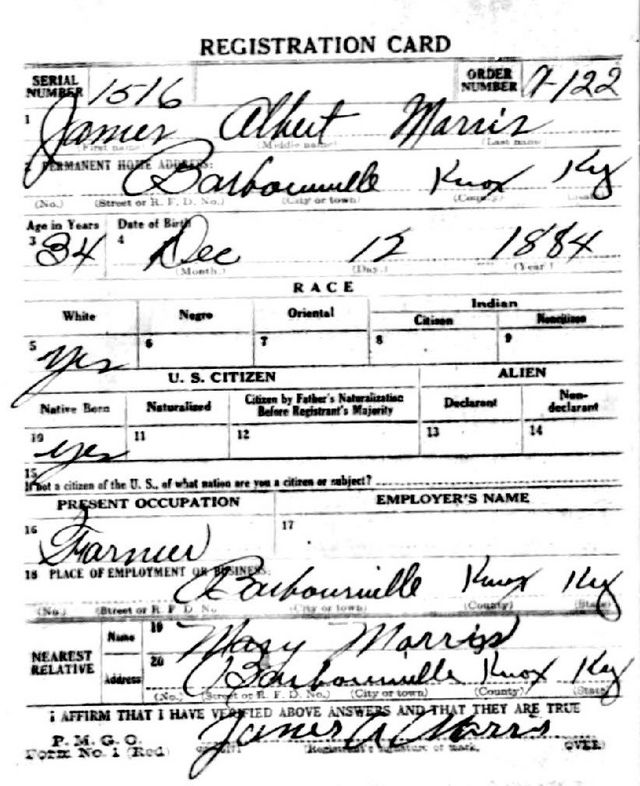 REGISTRATION CARD
SERIAL NUMBER 1516 ORDER NUMBER A-122
1 James Albert Morris
(First name) (Middle name) (Last name)
2 PERMANENT HOME ADDRESS:
Barbourville Knox Ky
(No.) (Street or R. F. D. No.) (City or town) (County) (State)
Age in Years Date of Birth
3 34 4 Dec 12 1884
(Month.) (Day.) (Year.)
RACE
White Negro Oriental Indian
Citizen Noncitizen
5 Yes 6 7 8 9
U. S. CITIZEN ALIEN
Native Born Naturalized Citizen by Father's Naturalization Before Registrant's Majority Declarant Non-declarant
10 Yes 11 12 13 14
15
If not a citizen of the U. S., of what nation are you a citizen or subject?
PRESENT OCCUPATION EMPLOYER'S NAME
16 Farmer 17
18 PLACE OF EMPLOYMENT OR BUSINESS:
Barbourville Knox Ky
(No.) (Street or R. F. D. No.) (City or town) (County) (State)
NEAREST RELATIVE Name 19 Mary Morris
Address 20 Barbourville Knox Ky
(No.) (Street or R. F. D. No.) (City or town) (County) (State)
I AFFIRM THAT I HAVE VERIFIED ABOVE ANSWERS AND THAT THEY ARE TRUE
P. M. G. O.
Form No. 1 (Red) James A Morris
(Registrant's signature or mark.) (OVER)